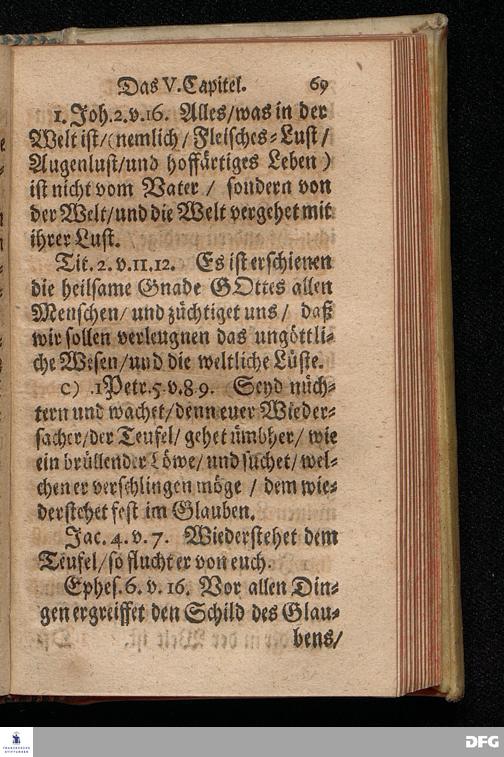 Das V. Capitel. 69
1. Joh. 2. v. 16. Alles/was in der
Welt ist/(nemlich/Fleisches-Lust/
Augenlust/und hoffärtiges Leben)
ist nicht vom Vater/ sondern von
der Welt/und die Welt vergehet mit
ihrer Lust.
Tit. 2. v. 11. 12. Es ist erschienen
die heilsame Gnade GOttes allen
Menschen/ und züchtiget uns/ daß
wir sollen verleugnen das ungöttli-
che Wesen/und die weltliche Lüste.
C) .1Petr. 5. v. 8 9. Seyd nüch-
tern und wachet/denn euer Wieder-
sacher/der Teufel/ gehet ümbher/ wie
ein brüllender Löwe/ und suchet/wel-
chen er verschlingen möge/ dem wie-
derstehet fest im Glauben.
Jac. 4. v. 7. Wiederstehet dem
Teufel/so flucht er von euch.
Ephes. 6. v. 16. Vor allen Din-
gen ergreiffet den Schild des Glau-
bens/
FRANCKESCHE
STIFTUNGEN
DFG